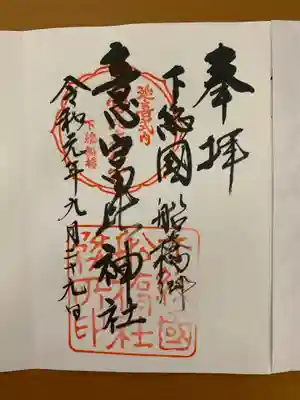 奉拝
下総國船橋郷
意富比神社
令和元年九月二十九日
延喜式内
下総船橋